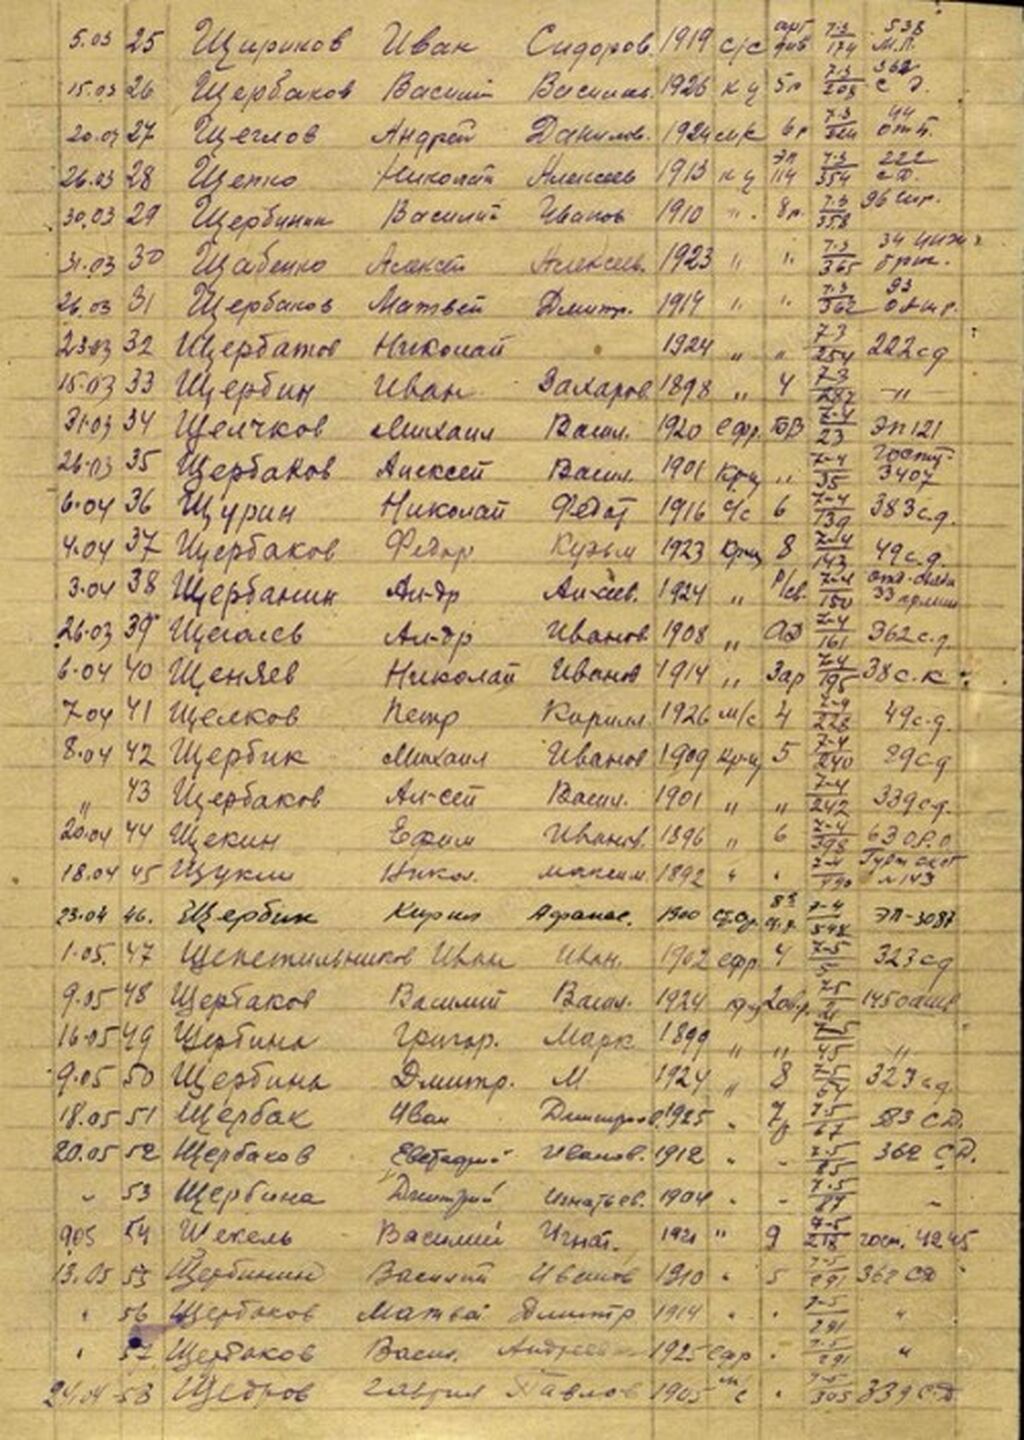 5.03 25 Щириков Иван Сидоров. 1919 с/с 7-3/174
15.03 26 Щербаков Василий Василь. 1926 кц 5р 7-3/208 362 с д.
20.03 27 Щеглов Андрей Данилов. 1924 6р 7-3
26.03 28 Щепко Николай Алексеев 1913 кц ЭП 114 7-3/354 222 с.д.
30.03 29 Щербинин Василий Иванов 1910 " 8р. 7-3/358
31.03 30 Щабенко Алексей Алексеев. 1923 " " 7-3/365 34 инж.
26.03 31 Щербаков Матвей Дмитр. 1914 " " 7-3/362 93
23.03 32 Щербатов Николай 1924 " " 7-3/254 222 сд
15.03 33 Щербин Иван Захаров 1898 " 4 7-3/287 -"-
31.03 34 Щелчков Михаил Васил. 1920 ефр. 7-4/23 ЭП 121
26.03 35 Щербаков Алексей Васил. 1901 Кр-ц " 7-4/35 госпит. 3407
6.04 36 Щурин Николай Федот 1916 с/с 6 7-4/139 383 с.д.
4.04 37 Щербаков Федор Кузьм 1923 Кр-ц 8 7-4/143 49 с.д.
3.04 38 Щербанин Ал-др Ал-сеев. 1924 " Р/св. 7-4/150 33 армии
26.03 39 Щегалев Ал-др Иванов 1908 " 7-4/161 362 с.д.
6.04 40 Щеняев Николай Иванов 1914 " 7-4/195 38 с.к
7.04 41 Щелков Петр Кирилл. 1926 м/с 4 7-4/228 49 с.д.
8.04 42 Щербик Михаил Иванов 1909 Кр-ц 5 7-4/240 29 с.д
" 43 Щербаков Ал-сей Васил. 1901 " " 7-4/242 339 с.д.
20.04 44 Щекин Ефим Иванов. 1896 " 6 7-4/398
18.04 45 Щукин Никол. Максим. 1892 " " 7-4/490 №143
23.04 46. Щербик Кирил Афанас. 1900 7-4/548 ЭП-3087
1.05. 47 Щепетильников Иван Иван. 1902 ефр. 4 7-5/5 323 сд
9.05 48 Щербаков Василий Васил. 1924 кр-ц 7-5/21
16.05 49 Щербина Григор. Марк 1899 " " 7-5/45 "
9.05 50 Щербина Дмитр. М 1924 " 8 7-5/64 323 с.д.
18.05 51 Щербак Иван Дмитриев. 1925 " 7р 7-5/67 383 С.Д.
20.05 52 Щербаков Евстафий Иванов. 1912 " - 7-5/85 362 С.Д.
" 53 Щербина Дмитрий Игнатьев. 1904 " - 7-5/89 -
9.05 54 Щекель Василий Игнат. 1921 " 9 7-5/218 госп. 4245
13.05 55 Щербинин Василий Иванов 1910 " 5 7-5/291 362 СД
" 56 Щербаков Матвей Дмитр 1914 " " 7-5/291 "
" 57 Щербаков Васил. Андреев 1925 ефр " 7-5/291 "
24.04 58 Щедров Гаврил Павлов 1905 м/с " 7-5/305 339 С.Д.